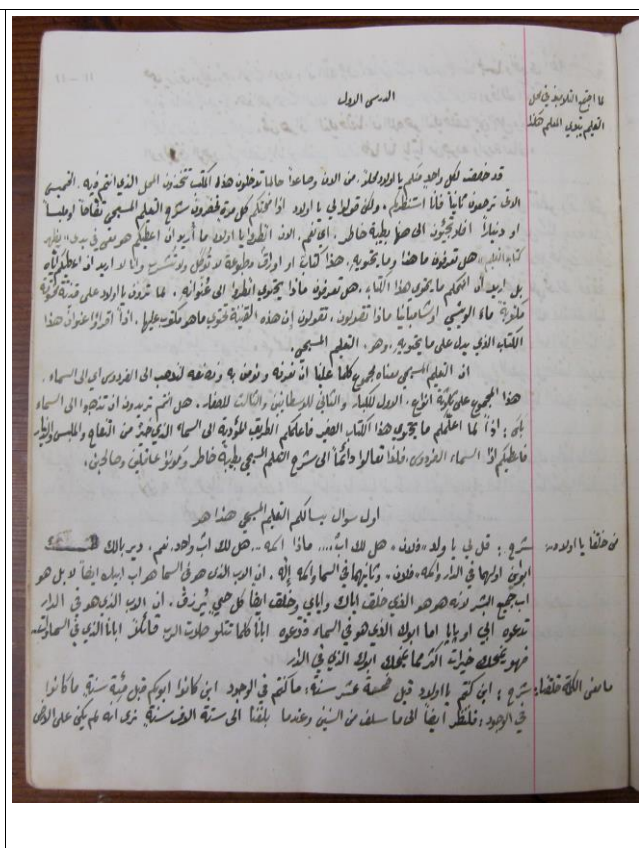 الدرس الاول
لما اجتمع التلاميذ في محل
التعليم بنوع المعلم هكذا
قد خلفت لكل واحد منكم يا اولاد محلاً. من الان وصاعداً حالما تدخلون هذا المكتب تتخذون المحل الذي انتم فيه. الخميس
الاتي ترجعون ثانياً فانا استنظركم. ولكن قولوا لي يا اولاد اذا منحتكم كل مرة تحضرون شرح التعليم المسيحي تفاحاً او ملبساً
او دنياراً افلا تجيئون الى هنا بطيبة خاطر. اي نعم. الان انظروا يا اولاد ما أريد ان اعطيكم هو معي في يدي
هل تعرفون ما هذا وما يحويه. هذا كتاب
بل اريد ان افهمكم ما يحوي هذا الكتاب. هل تعرفون ماذا يحتوي انظروا الى عنوانه. لما ترون يا اولاد على قنينة
ماذا تقولون. تقولون إن هذه القنينة تحوي ما هو مكتوب عليها. اذاً اقراوا عنوان هذا
الكتاب الذي يدل على ما يحويه. وهو. التعليم المسيحي.
ان التعليم المسيحي معناه مجموع كلما علينا ان نعرفه ونؤمن به ونصنعه لنذهب الى الفردوس اي الى السماء.
هذا المجموع على ثلاثة انواع. الاول للكبار والثاني للاوسطانيين والثالث للصغار. هل انتم تريدون ان تذهبوا الى السماء
بلى: اذاً لما اعلمكم ما يحوي هذا الكتاب الصغير فاعلمكم الطريق المؤدية الى السماء الذي خير من التفاح والملبس والدينار
فاعطيكم اذاً السماء الفردوس. فلذا تعالوا دائماً الى شرح التعليم المسيحي بطيبة خاطر وكونوا عاقلين وصالحين.
اول سوال يسالكم التعليم المسيحي هذا هو
من خلقنا يا اولاد
شرح: قل لي يا ولد فلان. هل لك اب... ماذا اسمه. هل لك اب واحد. نعم. دير بالك
ابوين اولهما في الدار واسمه فلان. وثانيهما في السما واسمه إله. ان الاب الذي هو في السما هو اب ابيك ايضاً لا بل هو
اب جميع البشر لانه هو هو الذي خلق اباك واباي وخلق ايضاً كل حي يُرزق. ان الاب الذي هو في الدار
تدعوه ابي او بابا اما ابوك الذي هو في السماء فتدعوه ابانا كلما تتلو صلوت الرب قائلاً ابانا الذي في السماوات
فهو يمنحك خيرات اكثر مما يمنحك ابوك الذي في الدار
ما معنى الكلمة خلقنا
شرح: اين كنتم يا اولاد قبل خمسة عشر سنة: ما كنتم في الوجود اين كانوا ابوكم قبل مئة سنة ما كانوا
في الوجود: فلننظر ايضاً الى ما سلف من السنين وعندما بلغنا الى ستة الاف سنة نرى انه لم يكن على الارض